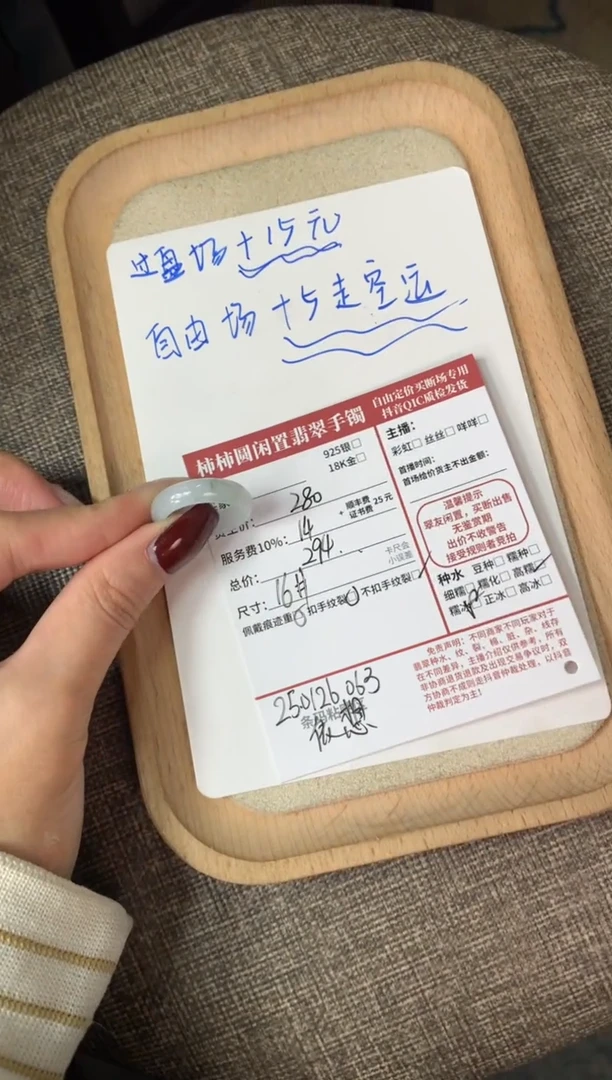 过盘场+15元
自由场+5走空运
柿柿圆闲置翡翠手镯
自由定价买断场专用
抖音QIC质检发货
925银□
18K金□
280
+ 顺丰费 证书费 25元
服务费10%: 14
总价: 294
卡尺会小误差
尺寸: 16#
佩戴痕迹重○ 扣手纹裂○ 不扣手纹裂□
250126 063
依想
主播:
彩虹□ 丝丝□ 咩咩□
首播时间:
首场给价货主不出金额:
温馨提示
翠友闲置,买断出售
无鉴赏期
出价不收警告
接受规则者竞拍
种水 豆种□ 糯种□
细糯□ 糯化□ 高糯□
糯冰□ 正冰□ 高冰□
免责声明:不同商家不同玩家对于
翡翠种水、纹、裂、棉、脏、杂、线存
在不同差异,主播介绍仅供参考,所有
非协商退货退款及出现交易争议时,双
方协商不成则走抖音仲裁处理,以抖音
仲裁判定为主!